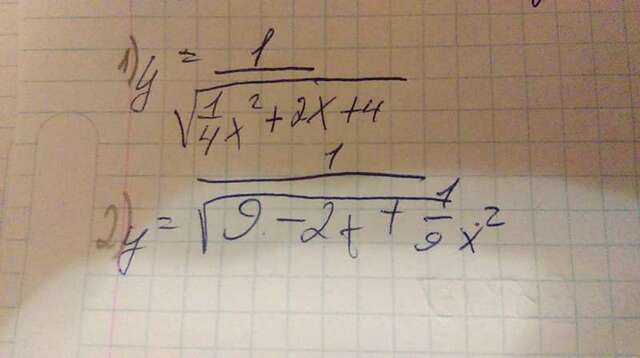 1) y = 1/√(1/4 x² + 2x + 4)
2) y = 1/√(9 - 2x + 1/9 x²)